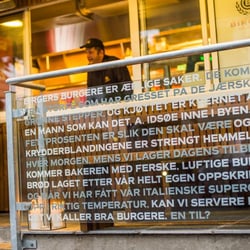 BIRGERS BURGERE ER ÆRLIGE SAKER. DE KOM
SOM HAR GRESSET PÅ DE JÆRSK
STEPPER. OG KJØTTET ER KJERNET
EN MANN SOM KAN DET. A. IDSØE INNE I BYEN
FETTPROSENTEN ER SLIK DEN SKAL VÆRE OG
KRYDDERBLANDINGENE ER STRENGT HEMME
HVER MORGEN, MENS VI LAGER DAGENS TILBE
KOMMER BAKEREN MED FERSKE, LUFTIGE BU
BRØD LAGET ETTER VÅR HELT EGEN OPPSKRI
OG NÅR VI HAR FÅTT VÅR ITALIENSKE SUPER
RIKTIG TEMPERATUR, KAN VI SERVERE
DET VI KALLER BRA BURGERE. EN TIL?